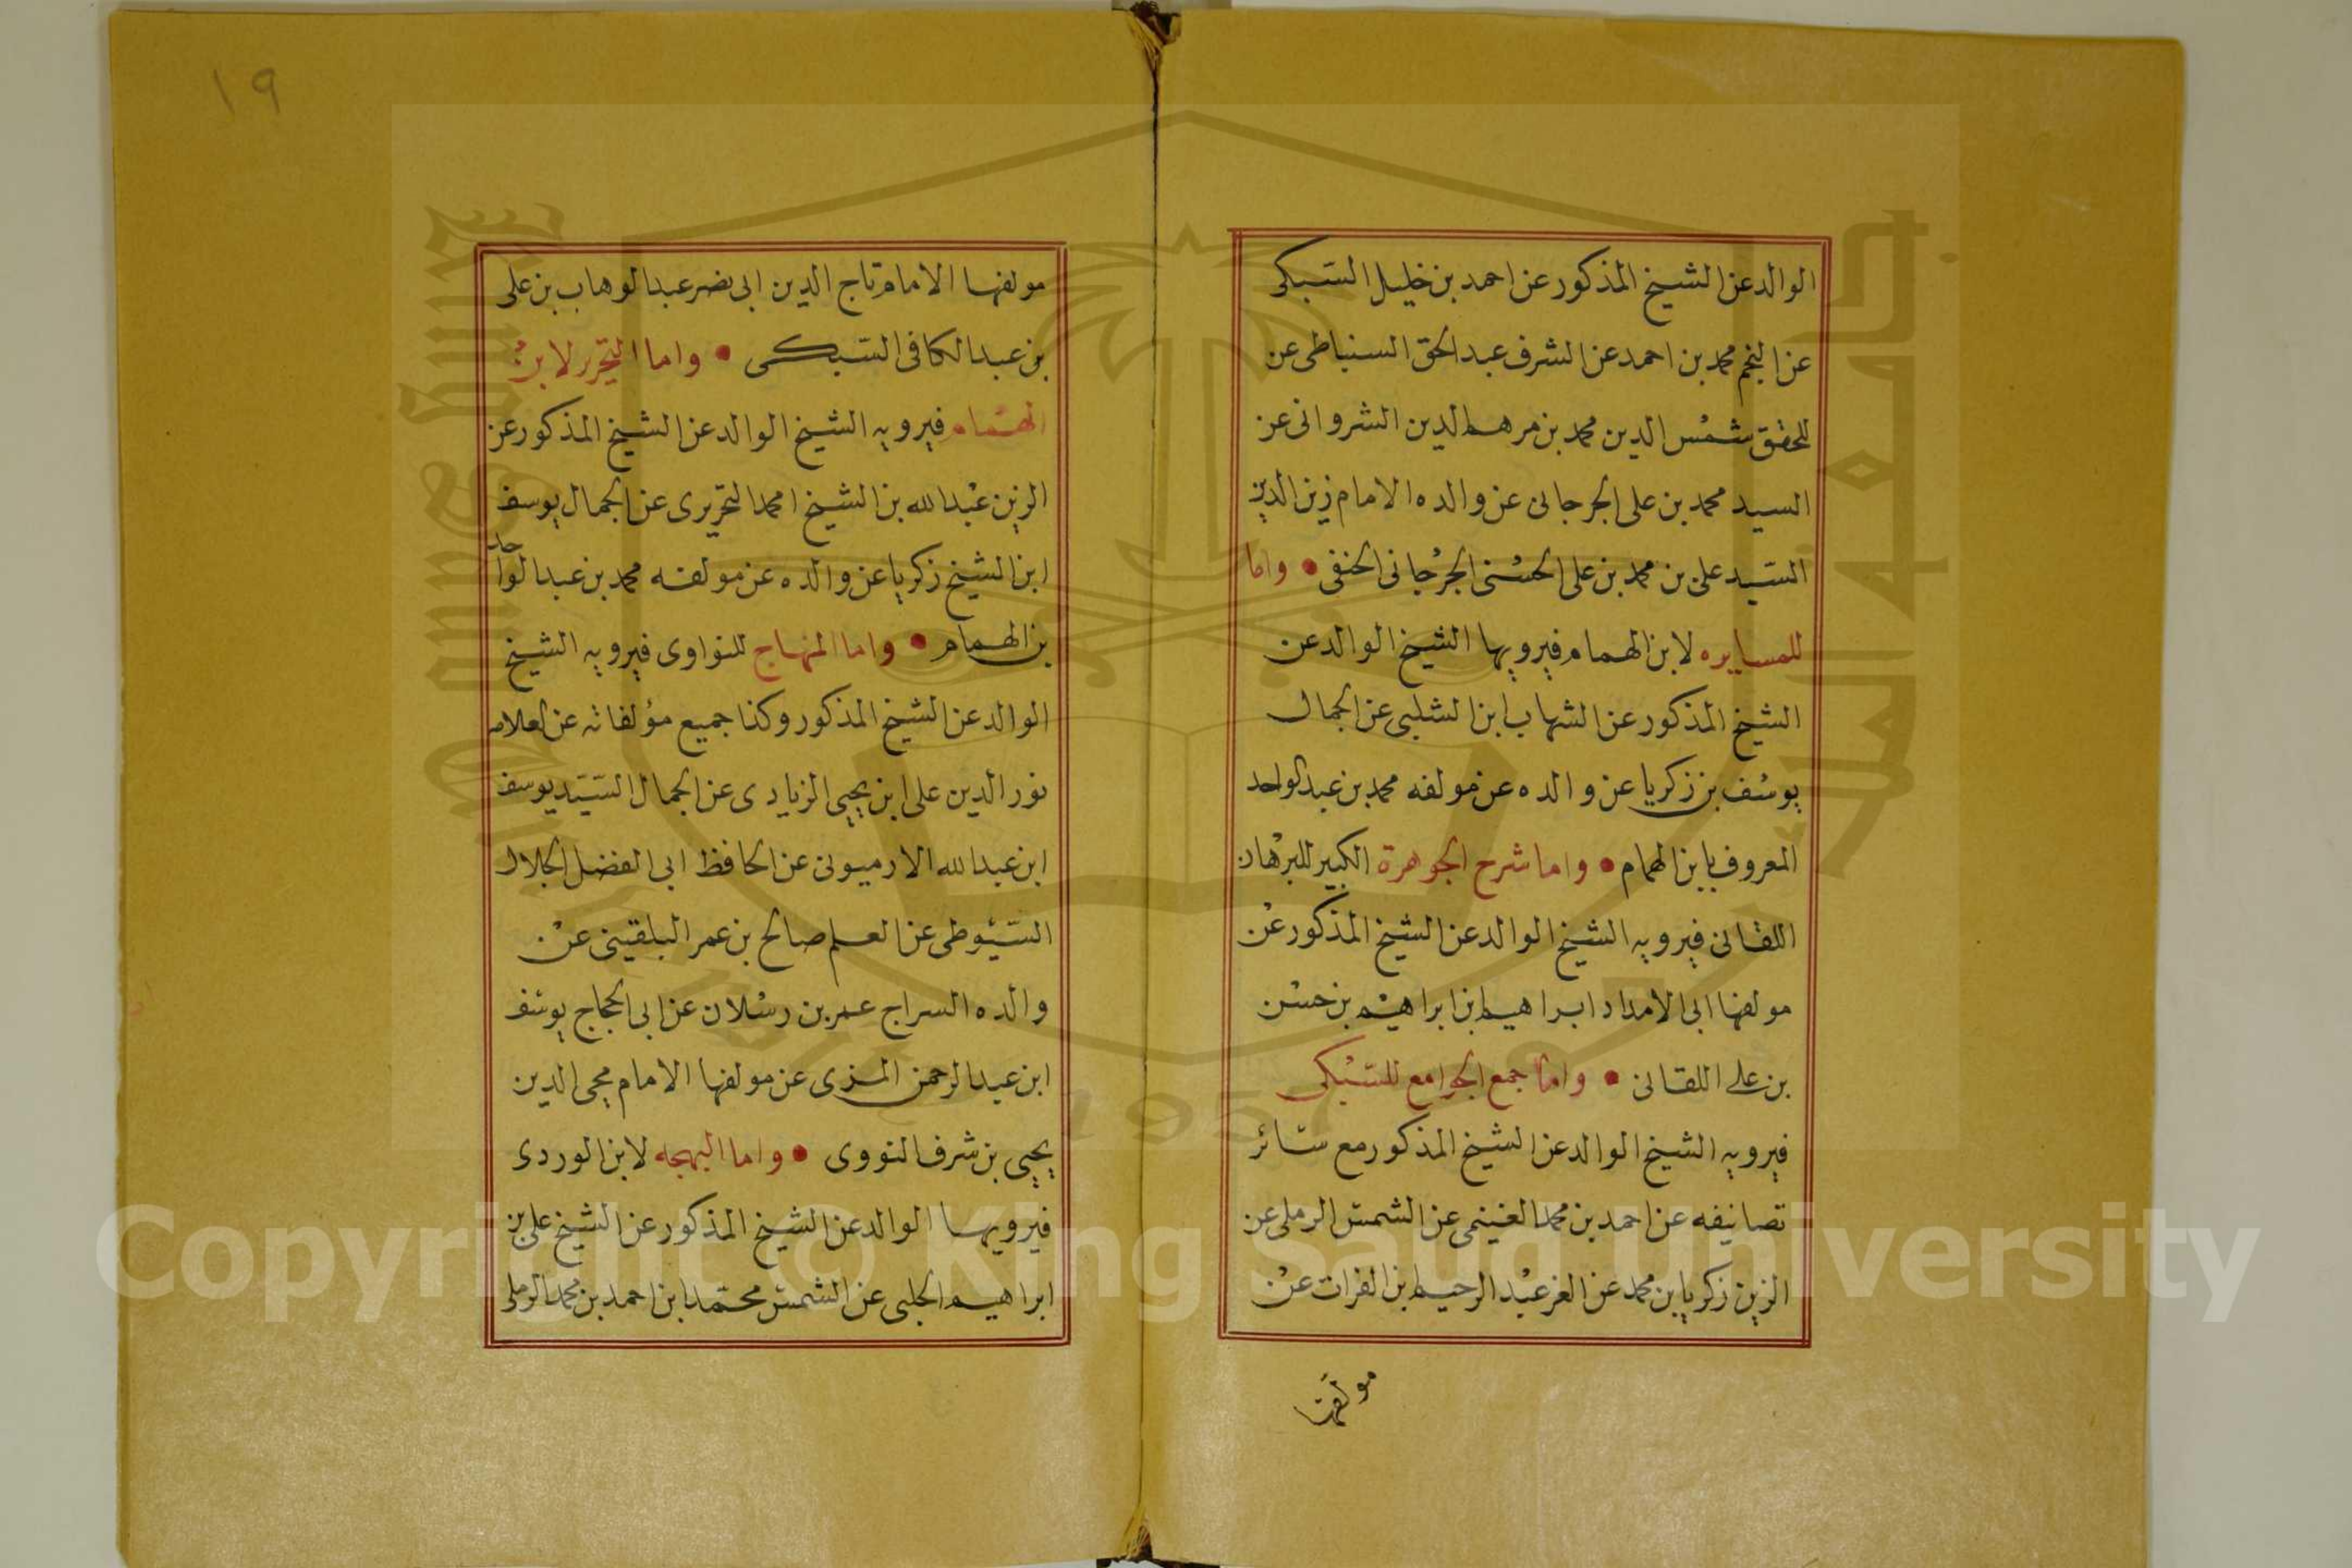 الوالد عن الشيخ المذكور عن احمد بن خليل السبكى
عن النجم محمد بن احمد عن الشرف عبد الحق السنباطى عن
المحقق شمس الدين محمد بن مرهم الدين الشروانى عن
السيد محمد بن على الجرجانى عن والده الامام زين الدين
السيد على بن محمد بن على الحسنى الجرجانى الحنفى • واما
للمسايره لابن الهمام فيرويها الشيخ الوالد عن
الشيخ المذكور عن الشهاب ابن الشلبى عن الجمال
يوسف بن زكريا عن والده عن مولفه محمد بن عبد الواحد
المعروف بابن الهمام • واما شرح الجوهرة الكبير للبرهان
اللقانى فيرويه الشيخ الوالد عن الشيخ المذكور عن
مولفها ابى الامداد ابراهيم ابن ابراهيم بن حسن
بن على اللقانى • واما جمع الجوامع للسبكى
فيرويه الشيخ الوالد عن الشيخ المذكور مع سائر
تصانيفه عن احمد بن محمد الغنيمى عن الشمس الرملى عن
الزين زكريا بن محمد عن العز عبد الرحيم ابن الفرات عن
مولفها
١٩
مولفها الامام تاج الدين ابى نصر عبد الوهاب بن على
بن عبد الكافى السبكى • واما التحرير لابن
الهمام فيرويه الشيخ الوالد عن الشيخ المذكور عن
الزين عبد الله بن الشيخ امحمد التحريرى عن الجمال يوسف
ابن الشيخ زكريا عن والده عن مولفه محمد بن عبد الواحد
بن الهمام • واما المنهاج للنواوى فيرويه الشيخ
الوالد عن الشيخ المذكور وكذا جميع مؤلفاته عن العلامه
نور الدين على ابن يحيى الزيادى عن الجمال السيد يوسف
ابن عبد الله الارميونى عن الحافظ ابى الفضل الجلال
السيوطى عن العلم صالح بن عمر البلقينى عن
والده السراج عمر بن رسلان عن ابى الحجاج يوسف
ابن عبد الرحمن المزى عن مولفها الامام محيى الدين
يحيى بن شرف النووى • واما البهجه لابن الوردى
فيرويها الوالد عن الشيخ المذكور عن الشيخ على بن
ابراهيم الحلبى عن الشمس محمد ابن احمد بن محمد الرملى
Copyright © King Saud University
1957